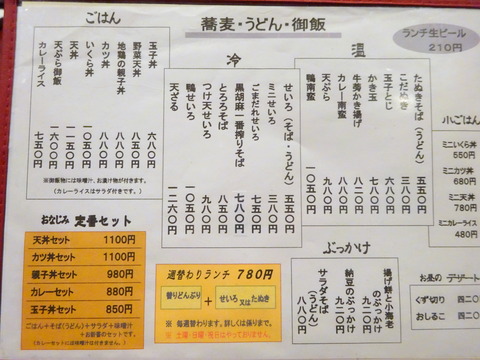 蕎麦・うどん・御飯
ランチ生ビール
210円
ごはん
玉子丼 六八〇
野菜天丼 八八〇
地鶏の親子丼 八八〇
カツ丼
いくら丼 一〇五〇
天丼 一一五〇
天ぷら御飯
カレーライス 七五〇
※御飯物には味噌汁、お漬け物が付きます。
(カレーライスはサラダ付きです。)
冷
せいろ(そば・うどん) 五五〇
ミニせいろ 三八〇
ごまだれせいろ
黒胡麻一番搾りそば 七八〇
とろろそば 八八〇
つけ天せいろ 九八〇
鴨せいろ
天ざる 一二六〇
温
たぬきそば(うどん) 五五〇
こだぬき 三八〇
玉子とじ
かき玉
牛蒡かき揚げ
カレー南蛮
天ぷら
鴨南蛮 一〇五〇
小ごはん
ミニいくら丼
550円
ミニカツ丼
680円
ミニ天丼
780円
ミニカレーライス
480円
おなじみ 定番セット
天丼セット 1100円
カツ丼セット 1100円
親子丼セット 980円
カレーセット 880円
玉子丼セット 850円
ごはん+そば(うどん)+サラダ+味噌汁
+お新香のセットです。
(カレーセットには味噌汁が付きません。)
週替わりランチ 780円
替りどんぶり + せいろ又はたぬき
※ 毎週替わります。詳しくは係りまで。
※ 土曜・日曜・祝日はやっておりません。
ぶっかけ
揚げ餅と小海老のぶっかけ 九二〇
納豆のぶっかけ 九二〇
サラダそば(うどん) 八八〇
お昼の デザート
くず切り 四二〇
おしるこ 四二〇